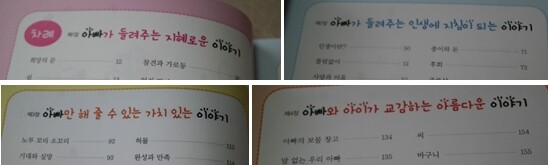 차례
제1장 아빠가 들려주는 지혜로운 이야기
희망의 문 12 참견과 가로등
제2장 아빠가 들려주는 인생에 지침이 되는 이야기
인생이란? 50 종이와 돈 71
쓸림없이 52 후회 72
사랑과 미움
제3장 아빠만 해 줄 수 있는 가치 있는 이야기
노루 꼬리 소꼬리 92 허물
기대와 실망 완성과 만족
제4장 아빠와 아이가 교감하는 아름다운 이야기
아빠의 보물 창고 134 씨 154
말 없는 우리 아빠 135 바구니 155